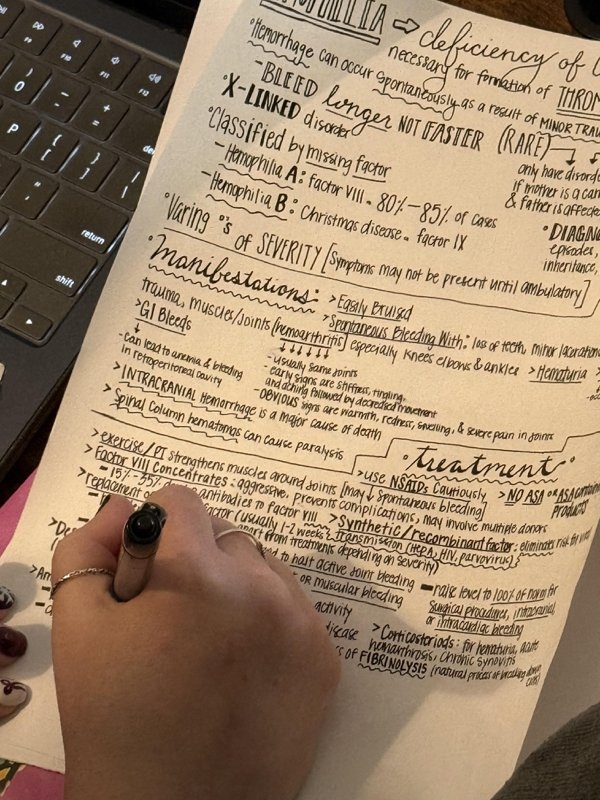 deficiency of
necessary for formation of THROM
°Hemorrhage can occur spontaneously as a result of MINOR TRAU
-BLEED longer NOT FASTER (RARE)
°X-LINKED disorder
only have disord
if mother is a car
& father is affecte
°Classified by missing factor
-Hemophilia A: factor VIII - 80%-85% of cases
-Hemophilia B: Christmas disease - factor IX
°DIAGN
episodes,
inheritance,
°Varing °'s of SEVERITY [Symptoms may not be present until ambulatory]
°manifestations:
>Easily Bruised
>Spontaneous Bleeding With: loss of teeth, minor laceration
trauma, muscles/Joints [hemoarthritis] especially knees elbows & ankles
>Hematuria
-usually same joints
-early signs are stiffness, tingling,
and aching followed by decreased movement
-OBVIOUS signs are warmth, redness, swelling, & severe pain in joints
>GI Bleeds
-can lead to anemia & bleeding
in retroperitoneal cavity
>INTRACRANIAL Hemorrhage is a major cause of death
>Spinal Column hematomas can cause paralysis
°treatment°
>exercise/PT strengthens muscles around Joints [may ↓ Spontaneous bleeding]
>use NSAIDs Cautiously
>NO ASA or ASA containing
products
>Factor VIII Concentrates: aggressive, prevents complications, may involve multiple donors
-15%-35% antibodies to factor VIII
>Synthetic/recombinant factor: eliminates risk for viral
transmission (HEPA, HIV, parvovirus)
replacement factor (usually 1-2 weeks
apart from treatments depending on severity)
to halt active Joint bleeding
or muscular bleeding
-raise level to 100% of norm for
surgical procedures, intracranial
or intracardiac bleeding
activity
disease
>Corticosteriods: for hematuria, acute
hemarthrosis, Chronic Synovitis
of FIBRINOLYSIS (natural process of breaking down
clots)
return
shift